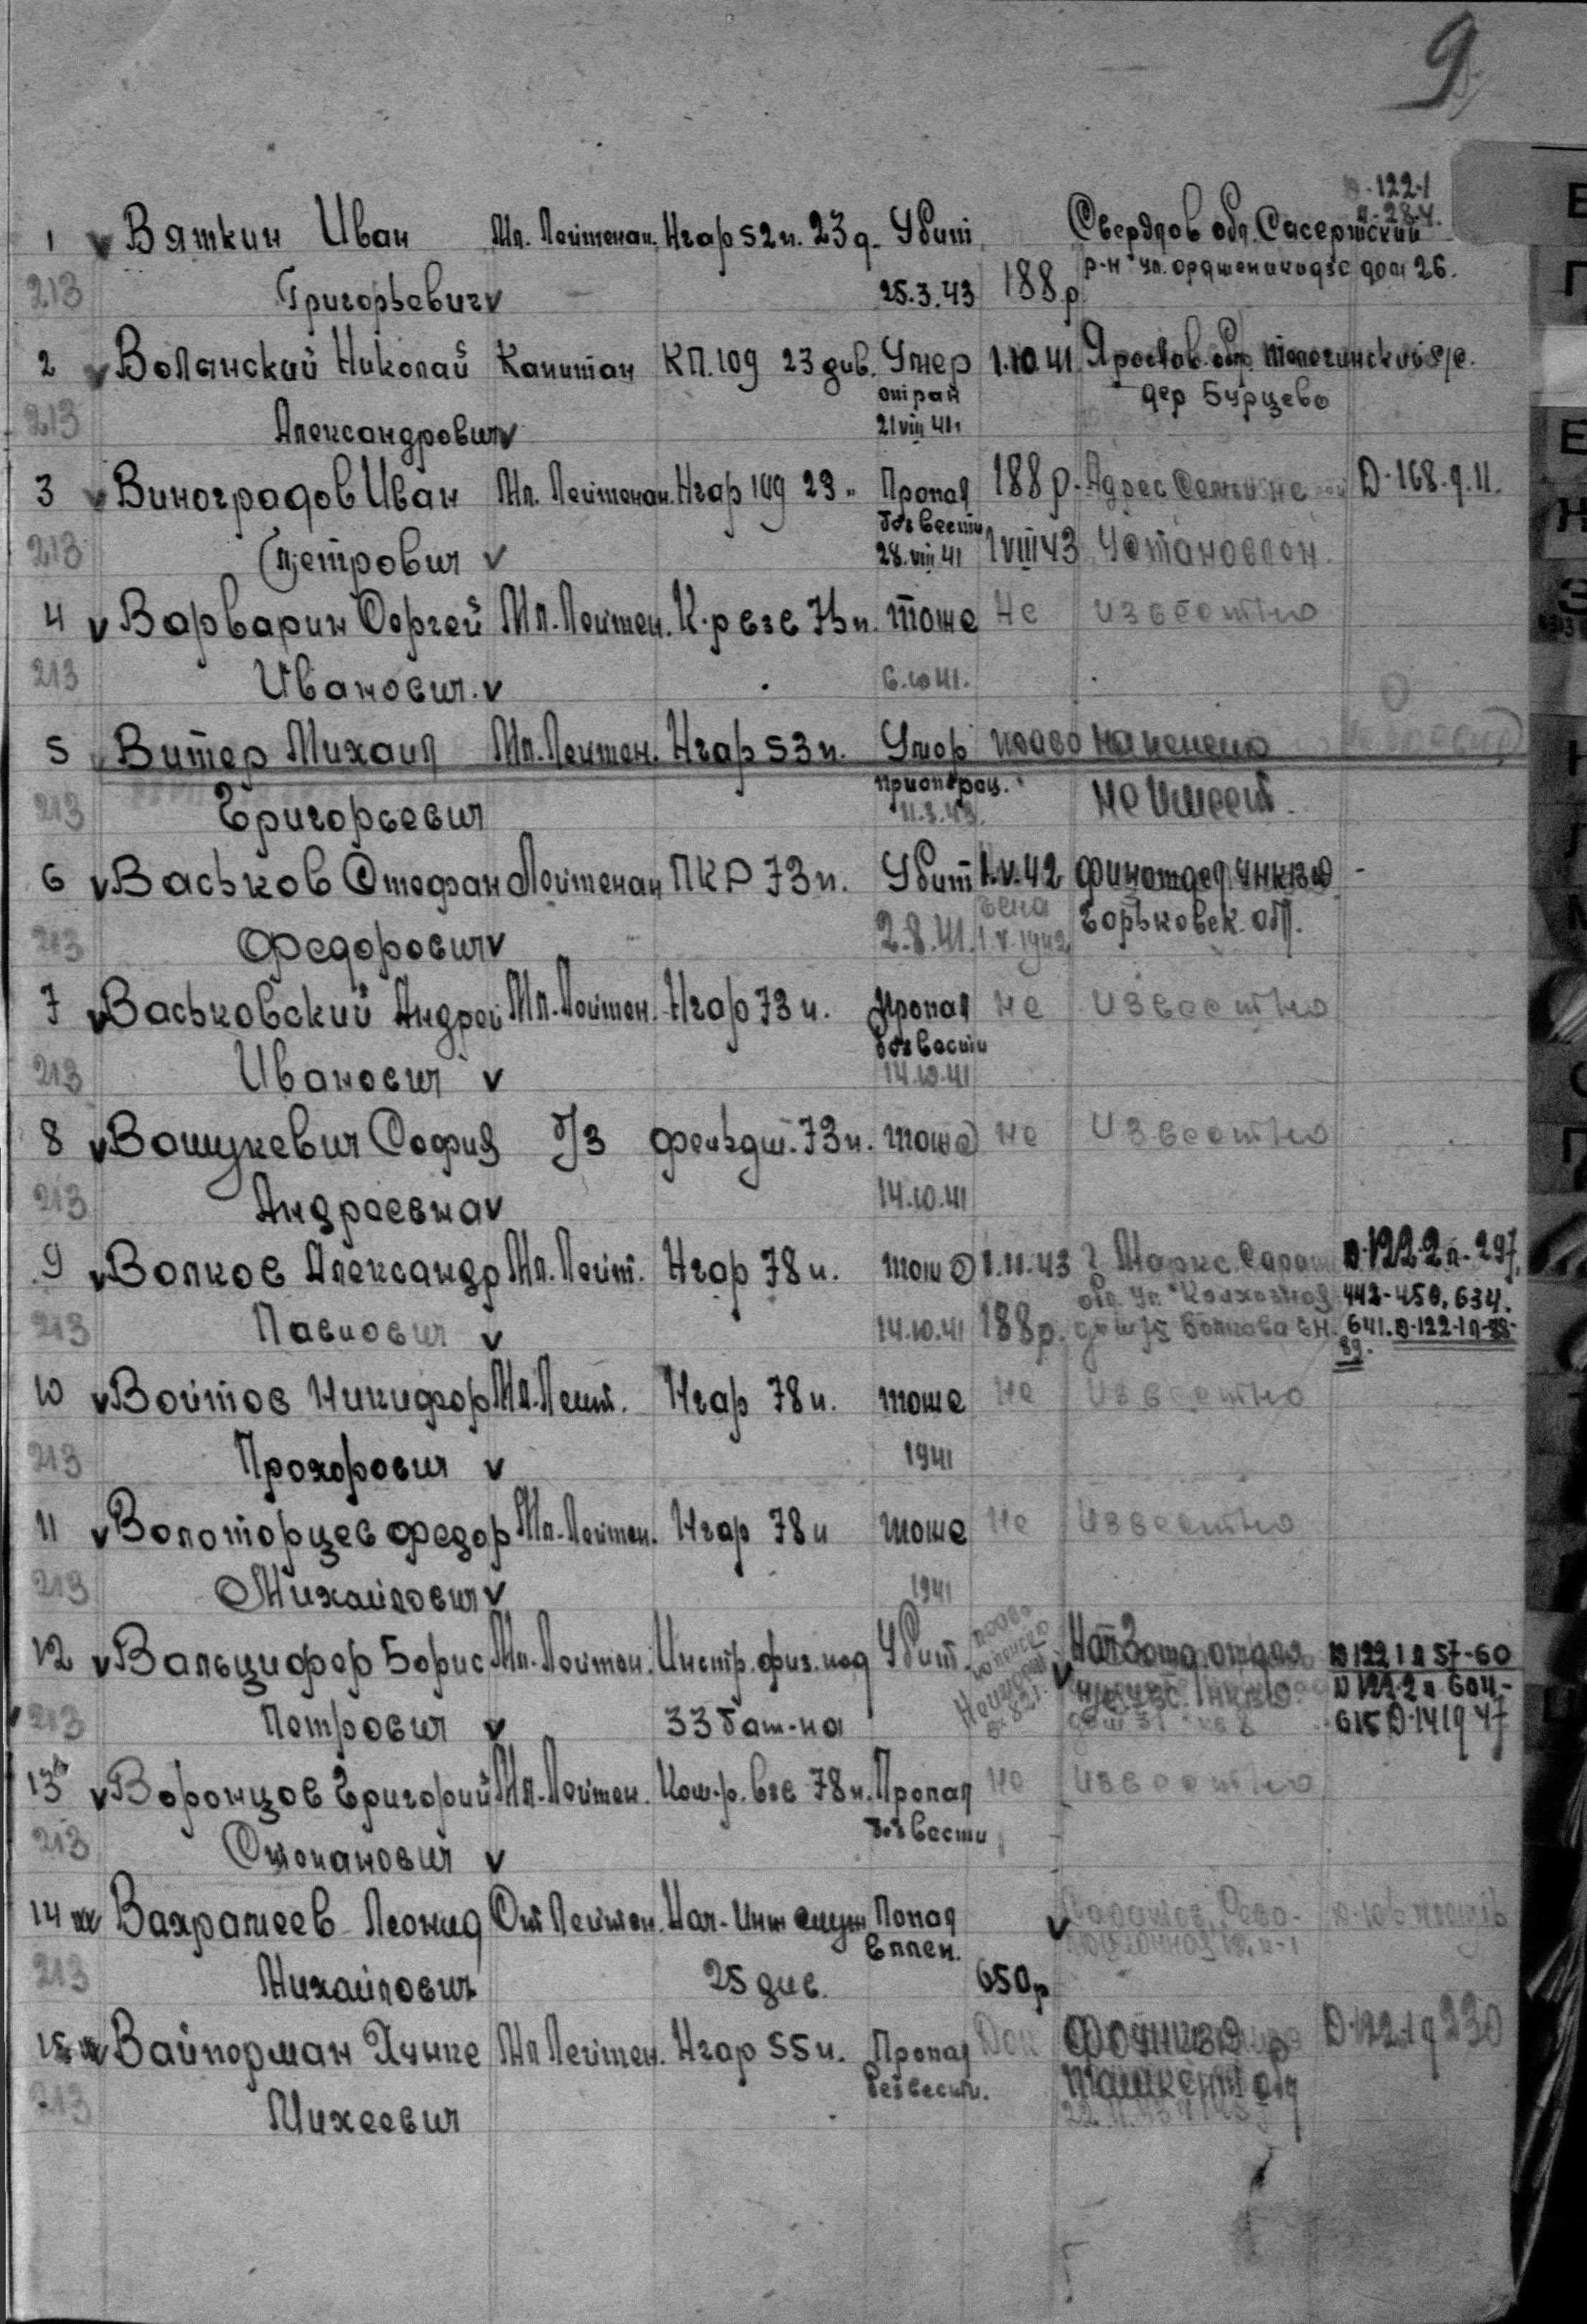 9
Д-122-1
л-284.
1 v Вяткин Иван Мл. Лейтенан. Нгар 52 п. 23 д. Убит Свердлов обл. Сасертский
213 Григорьевич v 25.3.43 188 р р-н ул. ордженикидзе дом 26.
2 v Волянский Николай Капитан КП. 109 23 див. Умер 1.10.41 Ярослав. обл.
от ран дер Бурцево
213 Александрович v 21 VIII 41
3 v Виноградов Иван Мл. Лейтенан. Нгар 109 23 " Пропал 188 р. Адрес Семьи не Д-168. д. 11.
без вести
213 Петрович v 28. VIII 41 1 VIII 43 Установлен.
4 v Варварин Сергей Мл. Лейтен. К-р взв 73 п. тоже не известно
213 Иванович. v 6.10.41.
5 Витер Михаил Мл. Лейтен. Нгар 53 п. Умер право на пенсию
213 Григорьевич не имеет.
11.3.43.
6 v Васьков Стефан Лейтенан ПКР 73 п. Убит 1.V.42 финотдел УНКВД -
213 Федорович v 2.8.41. 1.V.1942 Горьковск. обл.
7 v Васьковский Андрей Мл. Лейтен. Нгар 73 п. Пропал не известно
без вести
213 Иванович v 14.10.41
8 v Вошукевич София б/з фельдш. 73 п. тоже не известно
213 Андреевна v 14.10.41
9 v Волков Александр Мл. Лейт. Нгар 78 п. тоже 1.11.43 г Маркс. Сарат Д-122-2 л. 297,
обл. ул. Колхозная 442-450, 634.
213 Павлович v 14.10.41 188 р. дом 75 Волкова 641. Д-122-1 л-88-
89.
10 v Войтов Никифор Мл. Лейт. Нгар 78 п. тоже не известно
213 Прохорович v 1941
11 v Волоторцев Федор Мл. Лейтен. Нгар 78 п тоже не известно
213 Михайлович v 1941
12 v Вальцифер Борис Мл. Лейтен. Инстр. физ. под Убит. Д 122 1 л 57-60
Д 122-2 л. 604-
213 Петрович v 33 бат-на 615 Д-141 д 47
13 v Воронцов Григорий Мл. Лейтен. Ком-р. взв 78 п. Пропал не известно
без вести
213 Степанович v
14 Вахрамеев Леонид Ст Лейтен. Нач-Инт служ Попал
в плен.
213 Михайлович 25 див. 650 р
15 Вайперман Хунке Мл Лейтен. Нгар 55 п. Пропал ФО УНКВД Д-122-1 д 230
без вести. Ташкент обл
213 Михеевич